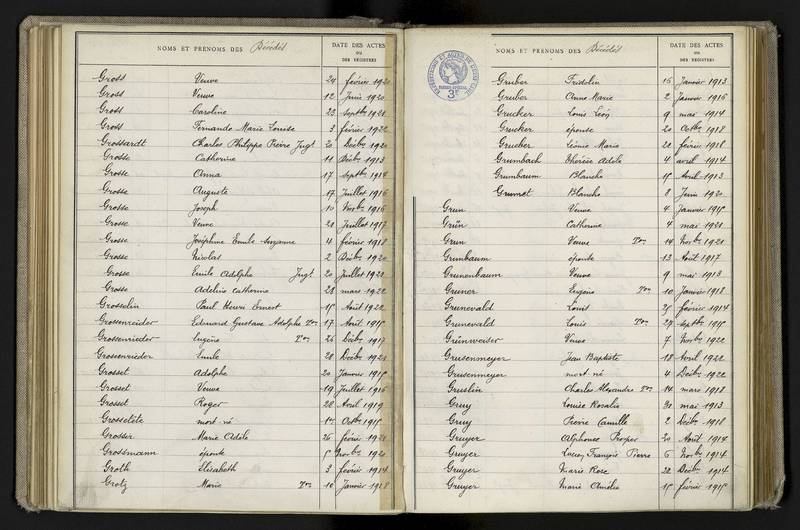 NOMS ET PRÉNOMS DES Décédés
DATE DES ACTES
OU
DES REGISTRES
Gross Veuve 24 février 1920
Gross Veuve 12 Juin 1920
Gross Caroline 22 Septbre 1921
Gross Fernande Marie Louise 3 février 1922
Grossardt Charles Philippe Pierre Jugt 20 Décbre 1920
Grosse Catherine 11 Décbre 1913
Grosse Anna 17 Septbre 1914
Grosse Auguste 17 Juillet 1916
Grosse Joseph 10 Novbre 1916
Grosse Veuve 21 Juillet 1917
Grosse Joséphine Emile 4 février 1918
Grosse Nicolas 2 Décbre 1920
Grosse Emile Adolphe Jugt 20 Juillet 1921
Grosse Adeline Catherine 28 mars 1922
Grosselin Paul Henri Ernest 15 Août 1922
Grossenreider Edmond Gustave Adolphe Ton 17 Août 1915
Grossenrieder Eugène Ton 26 Décbre 1917
Grossenrieder Emile 28 Décbre 1921
Grosset Adolphe 20 Janvier 1915
Grosset Veuve 19 Juillet 1916
Grosset Roger 28 Avril 1919
Grossetête mort-né 1er Octbre 1915
Grossir Marie Adèle 26 février 1921
Grossmann épouse 5 Novbre 1920
Groth Elisabeth 3 février 1914
Grotz Marie Ton 10 Janvier 1918
NOMS ET PRÉNOMS DES Décédés
DATE DES ACTES
OU
DES REGISTRES
Gruber Fridolin 16 Janvier 1913
Gruber Anne Marie 2 Janvier 1916
Grucker Louis Léon 9 mai 1914
Grucker épouse 20 Octbre 1918
Grueber Léonie Marie 22 février 1918
Grumbach Thérèse Adèle 4 avril 1914
Grumbaum Blanche 15 Avril 1913
Grumet Blanche 8 Juin 1920
Grun Veuve 4 Janvier 1915
Grün Catherine 4 mai 1921
Grun Veuve Ton 14 Novbre 1921
Grunbaum épouse 13 Août 1917
Grunenbaum Veuve 9 mai 1913
Gruner Eugène Ton 10 Janvier 1918
Grunevald Louis 25 février 1914
Grunevald Louis Ton 27 Septbre 1915
Grünnweiser Veuve 7 Novbre 1922
Grusenmeyer Jean Baptiste 18 Avril 1922
Grusenmeyer mort-né 4 Décbre 1922
Gruslin Charles Alexandre Ton 14 mars 1918
Gruy Louise Rosalie 31 mai 1913
Gruy Pierre Camille 2 Décbre 1918
Gruyer Alphonse Prosper 20 Août 1914
Gruyer Lucien François Pierre 6 Novbre 1914
Gruyer Marie Rose 22 Décbre 1914
Gruyer Marie Amélie 15 février 1915